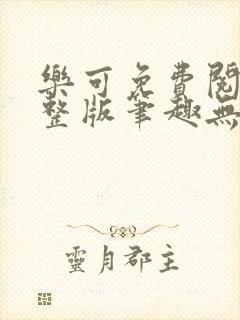 樂可免費閱
整版筆趣無
靈月郡主